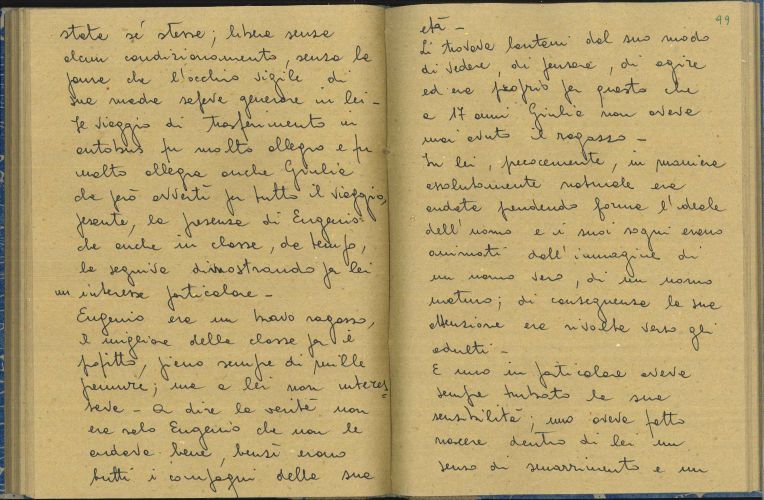 stata sé stessa; libera senza
alcun condizionamento, senza la
paura che l'occhio vigile di
sua madre sapeva generare in lei -
Il viaggio di trasferimento in
autobus fu molto allegro e fu
molto allegra anche Giulia
che però avvertì per tutto il viaggio,
pesante, la presenza di Eugenio
che anche in classe, da tempo,
la seguiva dimostrando per lei
un interesse particolare -
Eugenio era un bravo ragazzo,
il migliore della classe per il
profitto, pieno sempre di mille
premure; ma a lei non interes=
sava - A dire la verità non
era solo Eugenio che non le
andava bene, bensì erano
tutti i compagni della sua
49
età -
Li trovava lontani dal suo modo
di vedere, di pensare, di agire
ed era proprio per questo che
a 17 anni Giulia non aveva
mai avuto il ragazzo -
In lei, precocemente, in maniera
assolutamente naturale era
andata prendendo forma l'ideale
dell'uomo e i suoi sogni erano
animati dall'immagine di
un uomo vero, di un uomo
maturo; di conseguenza la sua
attenzione era rivolta verso gli
adulti -
E uno in particolare aveva
sempre turbato la sua
sensibilità; uno aveva fatto
nascere dentro di lei un
senso di smarrimento e un